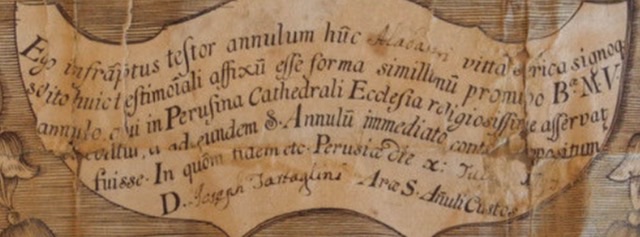 Ego infrāptus testor annulum hūc vittâ serica signoq.
huic testimoiali affixū esse forma simillimū pronubo Bᵉ M·V·
annulo, qui in Perusina Cathedrali Ecclesia religiosissime asservat
ad eundem S. Annulū immediato
fuisse. In quōm fidem etc. Perusiæ die x:
D. Joseph Tartaglini Aræ S. Anuli Custos